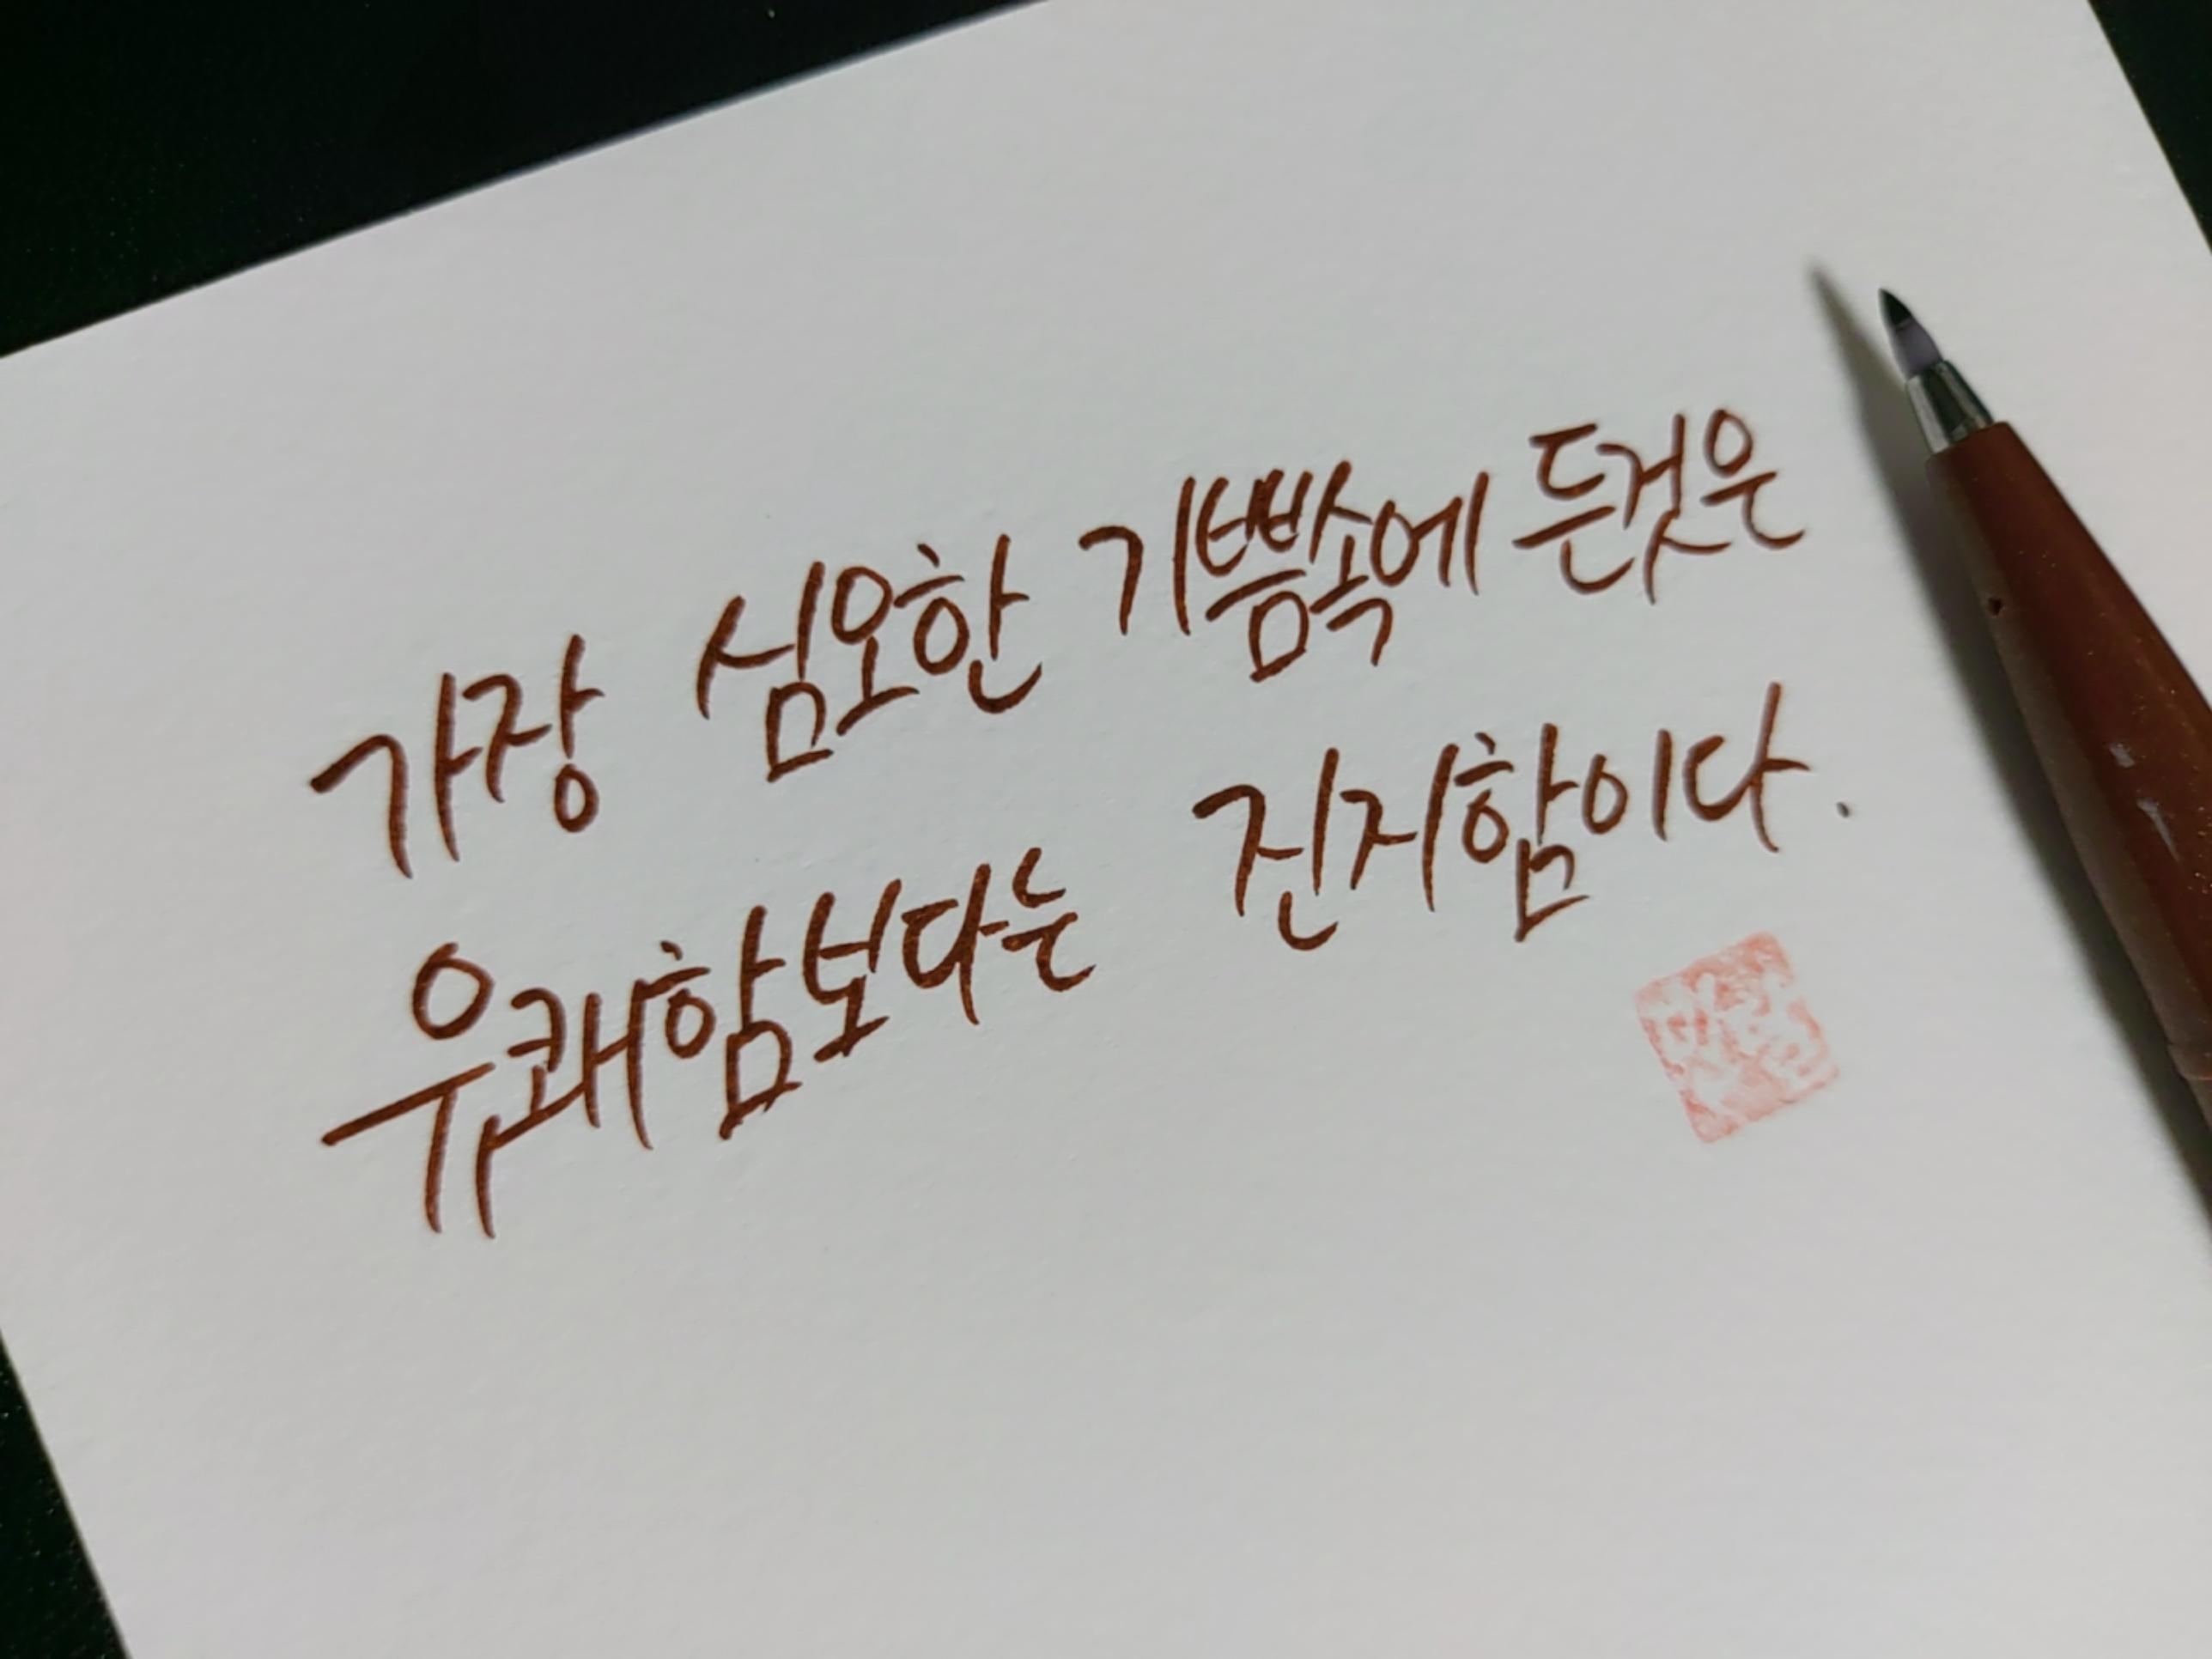 가장 심오한 기쁨속에 든것은
유쾌함보다는 진지함이다.